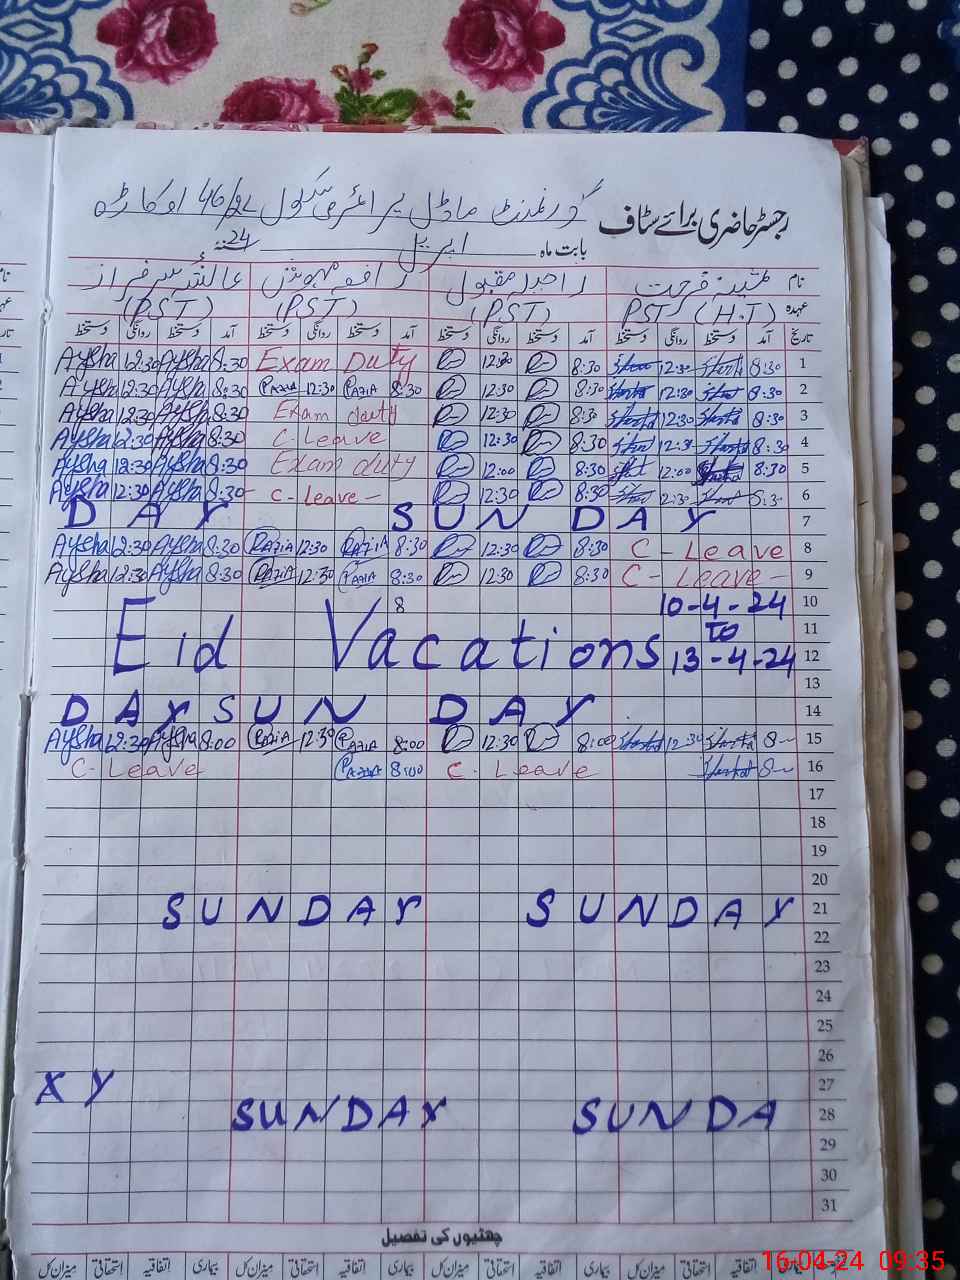 رجسٹر حاضری برائے سٹاف گورنمنٹ ماڈل پرائمری سکول 46/2L اوکاڑہ
بابت ماہ اپریل 24
نام راحیلہ مقبول عائشہ سرفراز
عہدہ PST (H.T) (PST) (PST) (PST)
تاریخ آمد دستخط روانگی دستخط آمد دستخط روانگی دستخط آمد دستخط روانگی دستخط آمد دستخط روانگی دستخط
Aysha 12:30 Aysha 8:30 Exam Duty 12:30 8:30 12:30 8:30 1
Aysha 12:30 Aysha 8:30 Razia 12:30 Razia 8:30 12:30 8:30 12:30 8:30 2
Aysha 12:30 Aysha 8:30 Exam duty 12:30 8:30 12:30 8:30 3
Aysha 12:30 Aysha 8:30 C-Leave 12:30 8:30 12:30 8:30 4
Aysha 12:30 Aysha 8:30 Exam duty 12:00 8:30 12:00 8:30 5
Aysha 12:30 Aysha 8:30 - C-Leave - 12:30 8:30 12:30 8:30 6
DAY SUNDAY 7
Aysha 12:30 Aysha 8:30 Razia 12:30 Razia 8:30 12:30 8:30 C-Leave 8
Aysha 12:30 Aysha 8:30 Razia 12:30 Razia 8:30 12:30 8:30 C-Leave- 9
8 10-4-24 10
Eid Vacations TO 11
13-4-24 12
13
DAY SUNDAY 14
Aysha 12:30 Aysha 8:00 Razia 12:30 Razia 8:00 12:30 8:00 12:30 8 15
C-Leave Razia 8:00 C-Leave 8 16
17
18
19
20
SUNDAY SUNDAY 21
22
23
24
25
26
XY 27
SUNDAY SUNDA 28
29
30
31
چھٹیوں کی تفصیل
اتفاقیہ استحقاقی میزان کل بیماری اتفاقیہ استحقاقی میزان کل بیماری اتفاقیہ استحقاقی میزان کل بیماری اتفاقیہ استحقاقی میزان کل
16-04-24 09:35